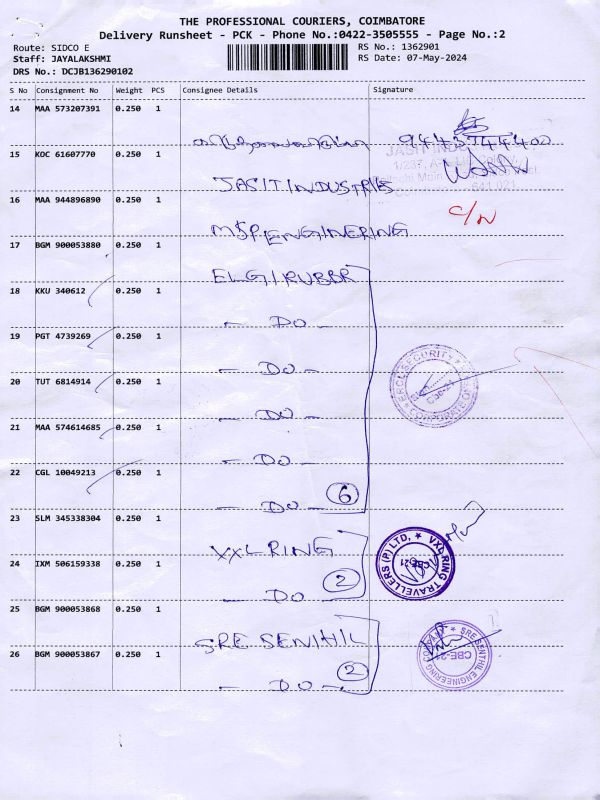 THE PROFESSIONAL COURIERS, COIMBATORE
Delivery Runsheet - PCK - Phone No.:0422-3505555 - Page No.:2
Route: SIDCO E
RS No.: 1362901
Staff: JAYALAKSHMI
RS Date: 07-May-2024
DRS No.: DCJB136290102
S No Consignment No Weight PCS Consignee Details Signature
14 MAA 573207391 0.250 1
15 KOC 61607770 0.250 1
JASIT INDUSTRIES
16 MAA 944896890 0.250 1
C/N
MSP ENGINERING
17 BGM 900053880 0.250 1
ELGI RUBBR
18 KKU 340612 0.250 1
- DO -
19 PGT 4739269 0.250 1
- DO -
20 TUT 6814914 0.250 1
- DO -
21 MAA 574614685 0.250 1
- DO -
22 CGL 10049213 0.250 1
- DO - 6
ERCL SECURITY
CORPORATE OFFICE
CBE-21
23 SLM 345338304 0.250 1
VXL RING
24 IXM 506159338 0.250 1
- DO - 2
VXL RING TRAVELLERS (P) LTD. *
CBE-21
25 BGM 900053868 0.250 1
SRE SENTHIL
26 BGM 900053867 0.250 1
- DO - 2
SRE SENTHIL ENGINEERING
CBE-21